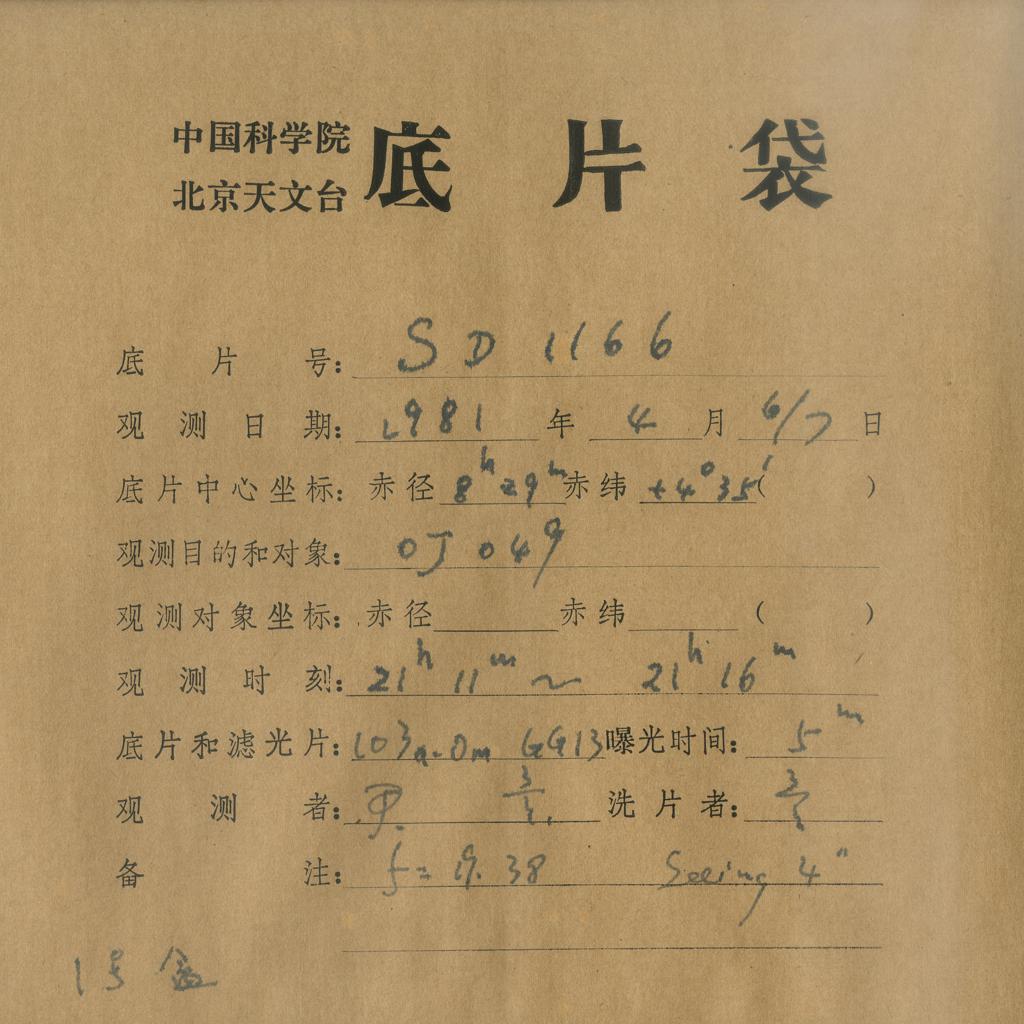 中国科学院
北京天文台
底片袋
底片号：SD 1166
观测日期：1981年4月6/7日
底片中心坐标：赤径8h29m赤纬+4°35′（ ）
观测目的和对象：OJ 049
观测对象坐标：赤径 赤纬 （ ）
观测时刻：21h 11m ～ 21h 16m
底片和滤光片：103a-Om GG13曝光时间：5m
观测者： 洗片者：
备注：f= 19.38 Seeing 4"
1号盒